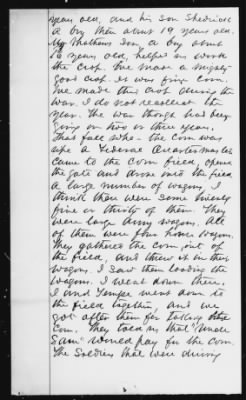 year old, and his son Shedrick
a boy then about 19 years old.
My Mathews son, a boy about
16 years old, helped us work
the crop. We made a mighty
good crop. It was fine corn.
We made this crop during the
war. I do not recollect the
year. The war though had been
going on two or three years.
That fall after the corn was
ripe a Federal Quartermaster
came to the corn field, opened
the gate and drove into the field
a large number of wagons, I
think there were some twenty
five or thirty of them. They
were large Army wagons. All
of them were four horse wagons.
They gathered the corn out of
the field, and threw it in their
wagons. I saw them loading the
wagons. I went down there.
I and Temple went down to
the field together, and we
got after them for taking the
Corn. They told us that "Uncle
Sam" would pay for the Corn.
The Soldiers that were during